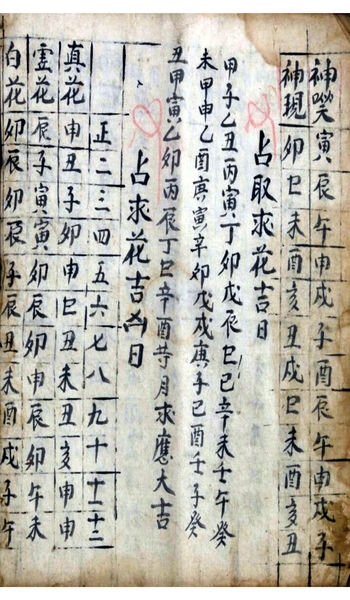 神咲寅辰午申戌子酉辰午申戌子
神現卯巳未酉亥丑戌巳未酉亥丑
占取求花吉日
甲子乙丑丙寅丁卯戊辰巳巳辛未壬午癸
未甲申乙酉庚寅辛卯戊戌庚子己酉壬子癸
丑甲寅乙卯丙辰丁巳辛酉等月求應大吉
占求花吉凶日
正二三四五六七八九十十一十二
真花申丑子卯申巳丑未丑亥申申
灵花辰子寅寅卯辰卯申辰卯午未
白花卯辰卯辰子辰丑未酉戌子午